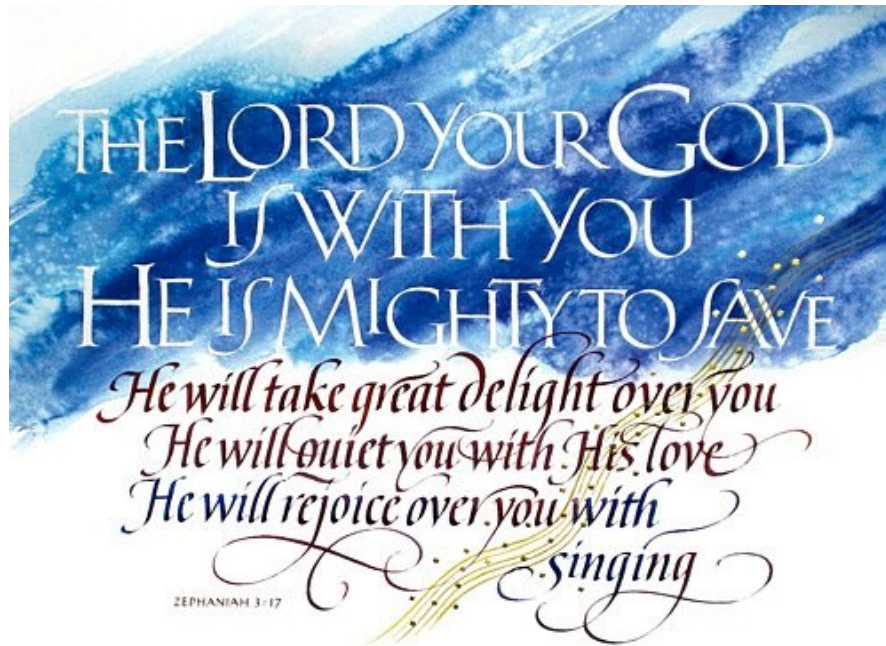 THE LORD YOUR GOD
IS WITH YOU
HE IS MIGHTY TO SAVE
He will take great delight over you
He will quiet you with His love
He will rejoice over you with
singing
ZEPHANIAH 3:17